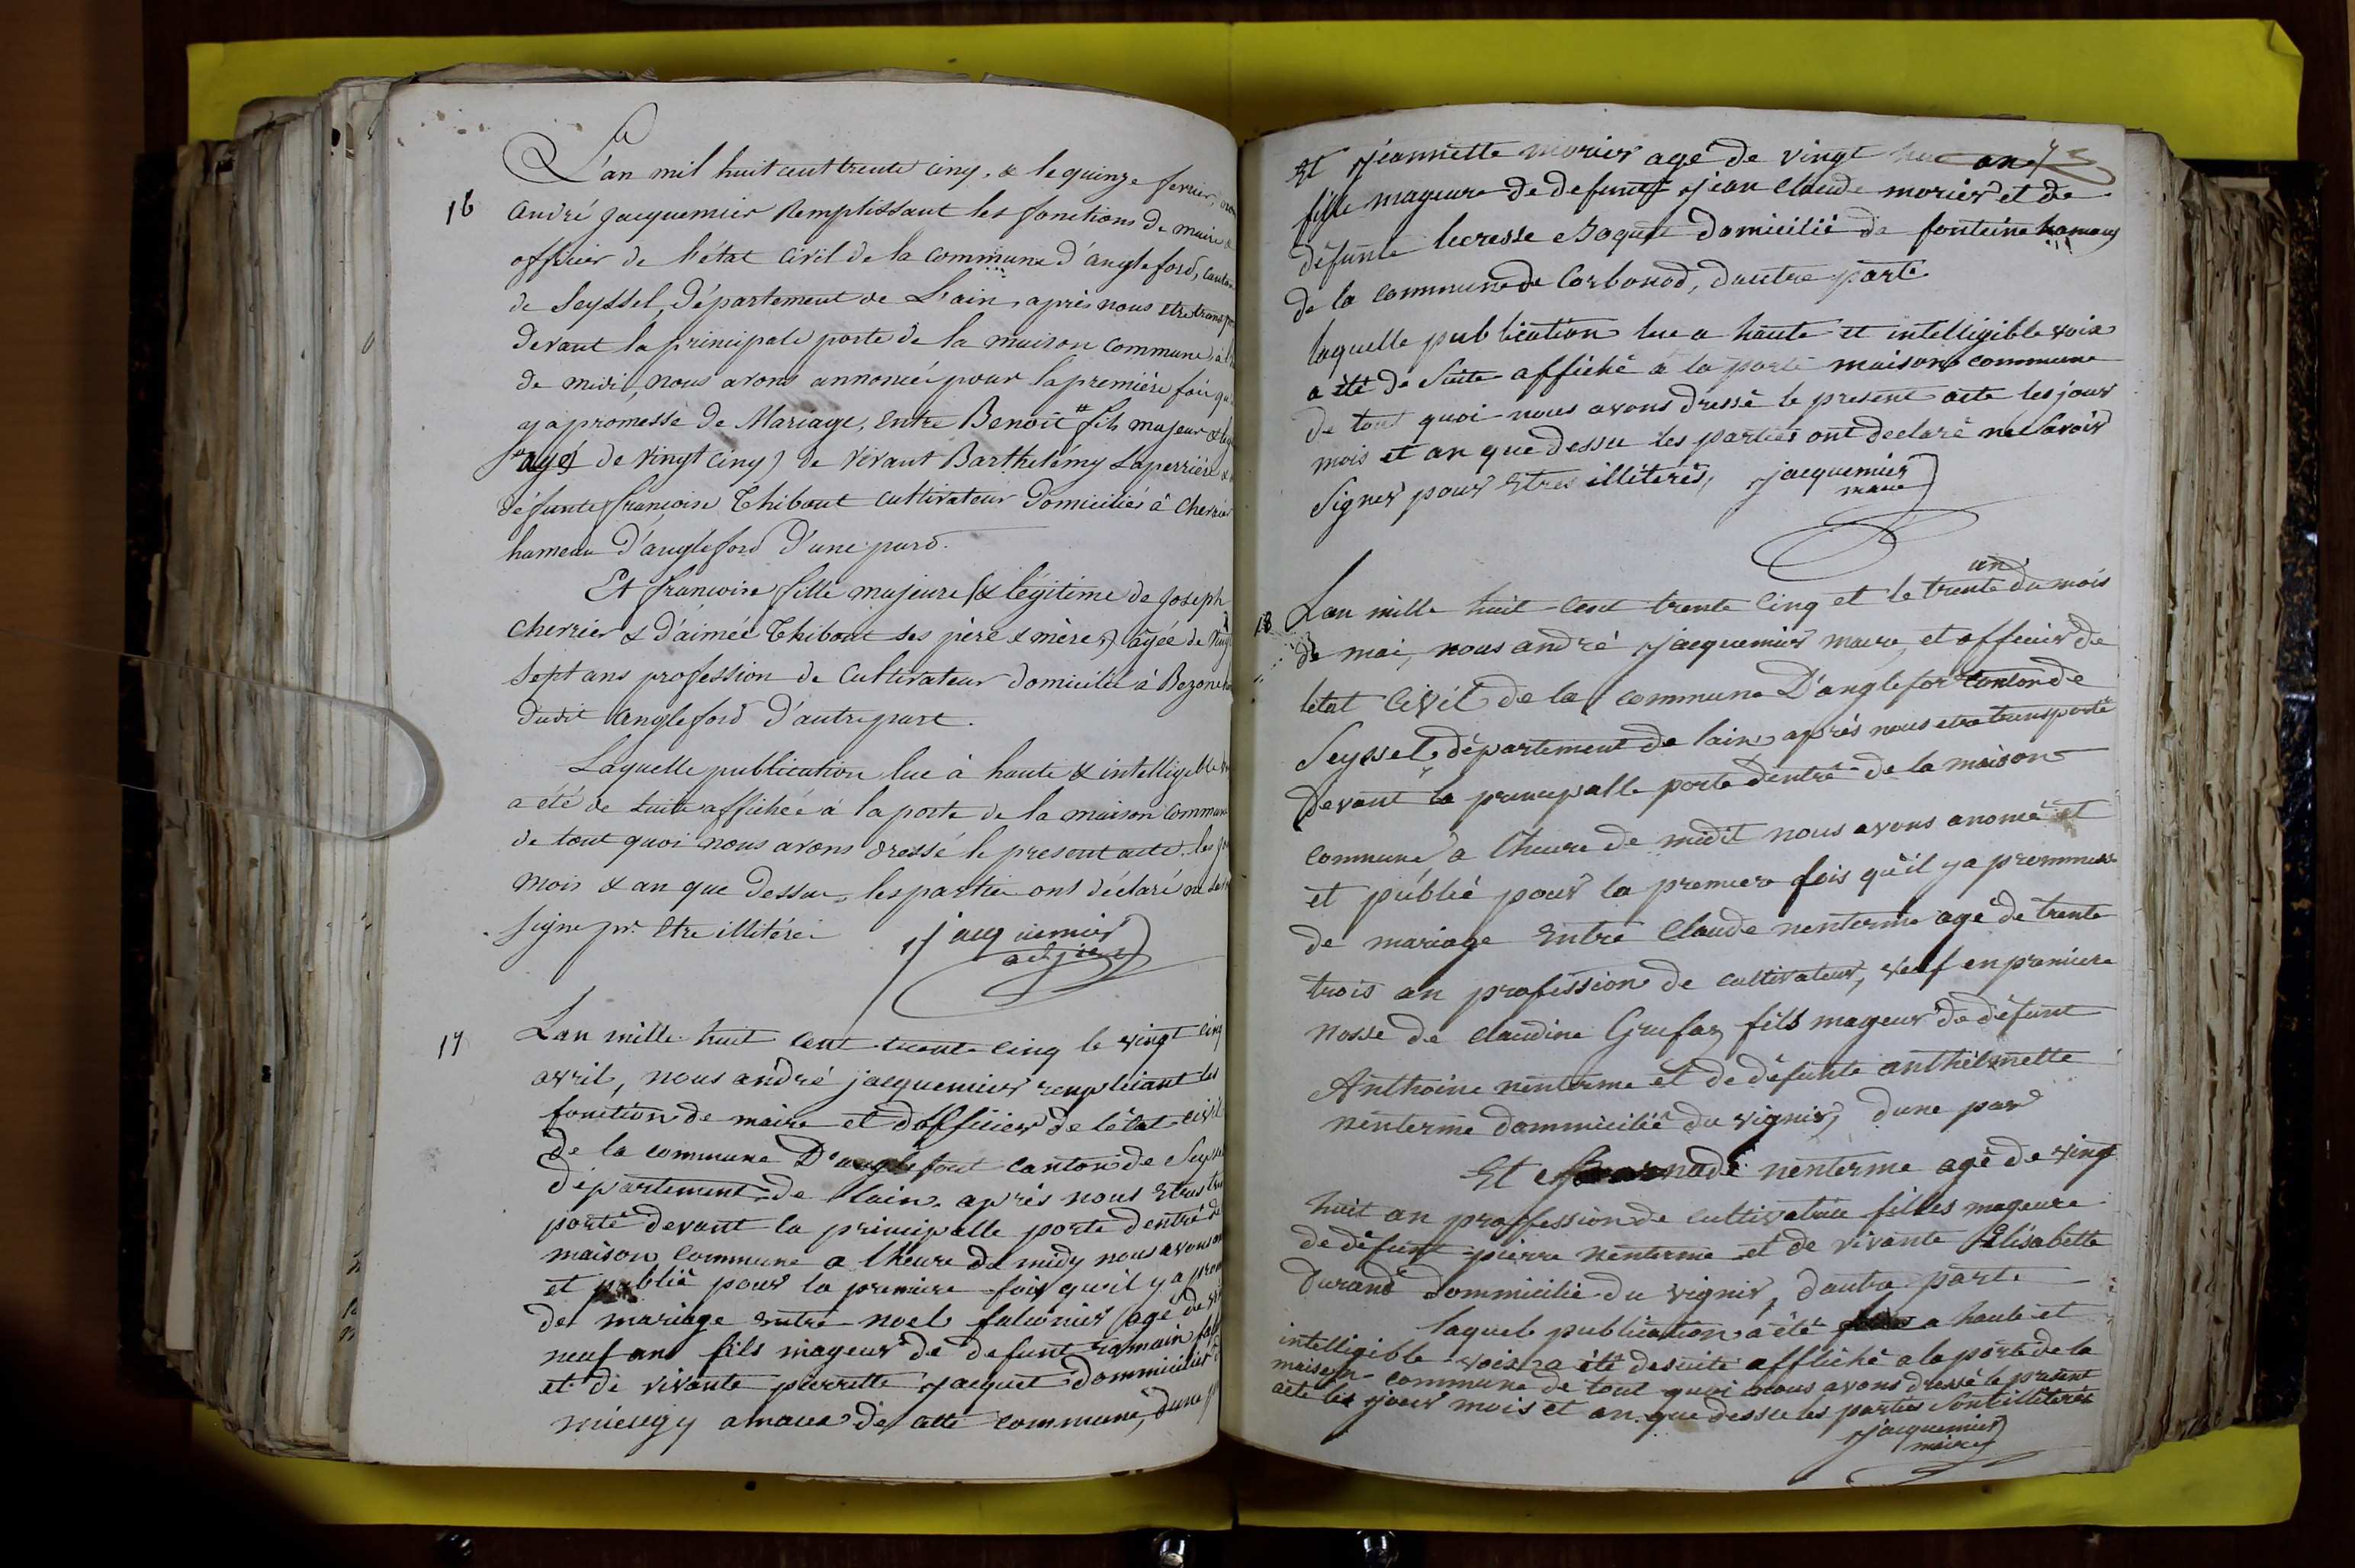 L'an mil huit cent trente cinq, & le quinze fevrier, nous
16 André Jacquemier Remplissant les fonctions de maire &
officier de l'état civil de la commune d'angleford, canton
de Seyssel, Département de L'ain, après nous etre transp
devant la principale porte de la maison commune, à l'h
de midi, nous avons annoncé pour la première fois qu
y a promesse de Mariage, entre Benoit # fils majeur & leg
# agé de vingt cinq) de vivant Barthelémy Laperrière &
défunte françoise Thibout cultivateur Domiciliés à Cherrier
hameau d'angleford d'une pard.
Et françoise fille majeure & légitime de Joseph
Cherrier & d'aimée Thibout ses père & mère) âgée de vingt
sept ans profession de Cultivateur domicilié à Bezone
dudit angleford d'autre part.
Laquelle publication lue à haute & intelligible
a été de suite affichée à la porte de la maison commune
de tout quoi nous avons dressé le present acte les jo
mois & an que dessus, les parties ont déclaré ne
signe pr. etre illitéréé
Jacquemier
adjoint
17 Lan mille huit cent trente cinq le vingt cinq
avril, nous andré jacquemier renplicant les
fonction de maire et dofficier de létat civil
de la commune D'anglefout canton de Seyss
département de lain, après nous etres trans
porté devant la principalle porte dentré de
maison commune a lheure de midy nous avons
et publié pour la premiere fois qu'il y a prom
de mariage entre noel falconier agé de vi
neuf ans fils mageur de defunt romain fal
et de vivante pierrette jacquet dommicilier
amaux de cette commune, dune
et jeannette morier agé de vingt an
fille mageure de defunt jean claude morier et de
défunte domicilié de fonteine hamaux
de la commune de Corbonod, dautre parte
laquelle publication lue a haute et intelligible voix
a été de suite affiché a la porte maison commune
de tout quoi nous avons dressé le present acte les jour
mois et an que dessu les parties ont declaré ne savoir
signer pour etres illiterés, jacquemier
maire
un
18 Lan mille huit cent trente cinq et le trente du mois
de mai, nous andré jacquemier maire, et officier de
létat civil de la commune D'anglefort canton de
Seyssel, département de lain, après nous etre transporté
devant la principalle porte dentré de la maison
commune a lheure de midit nous avons anoncé et
et publié pour la premiere fois qu'il y a prommesse
de mariage entre Claude nenterme agé de trente
trois an profission de cultivateur, veuf en premiere
nosse de claudine Grufaz fils mageur de défunt
Anthoine nenterme et de défunte anthelmette
nenterme dommicilié du vignier, dune par
Et nenterme agé de vingt
huit an proffession de cultivatrice filles mageure
de défunt pierre nenterme et de vivante Elisabette
Durand dommicilié du vignier, dautre parte
laquel publication a été a haute et
intelligible voix a été desuite affiché a la porte de la
maison commune de tout quoi nous avons dressé le présent
acte les jour mois et an que dessu les parties sont illiterés
jacquemier
maire